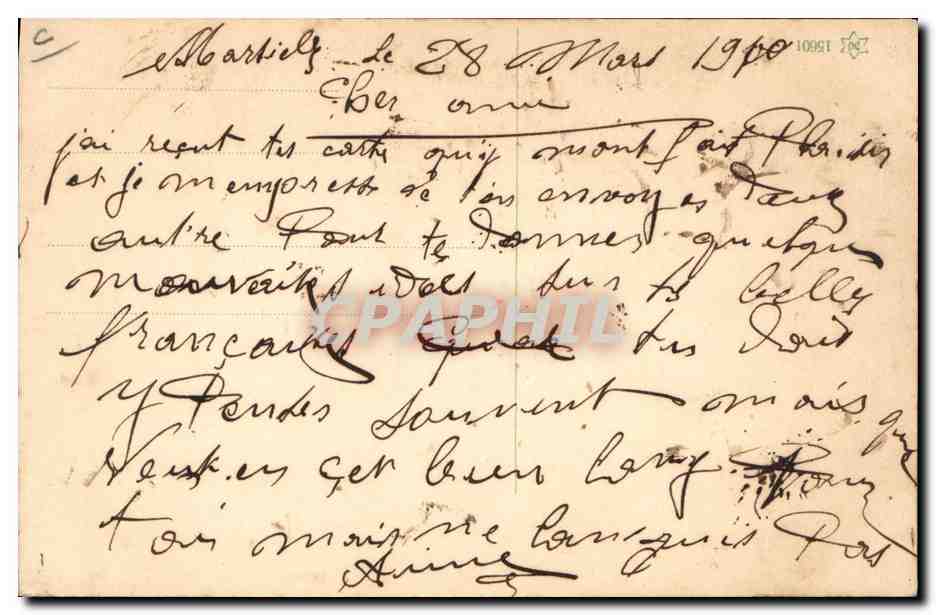 C
15601
le 28 Mars 1910
Cher ami
j'ai reçut tes carte quij mont fait Plaisir
et je m'empresse de t'en envoyer deux
autre Pour te donner quelque
mauvaises idées sur ts belles
françaises tu dois
y Penser souvent mais
que veux tu çet bien long Pour
toi mais ne languis Pas
Aimé
CPAPHIL